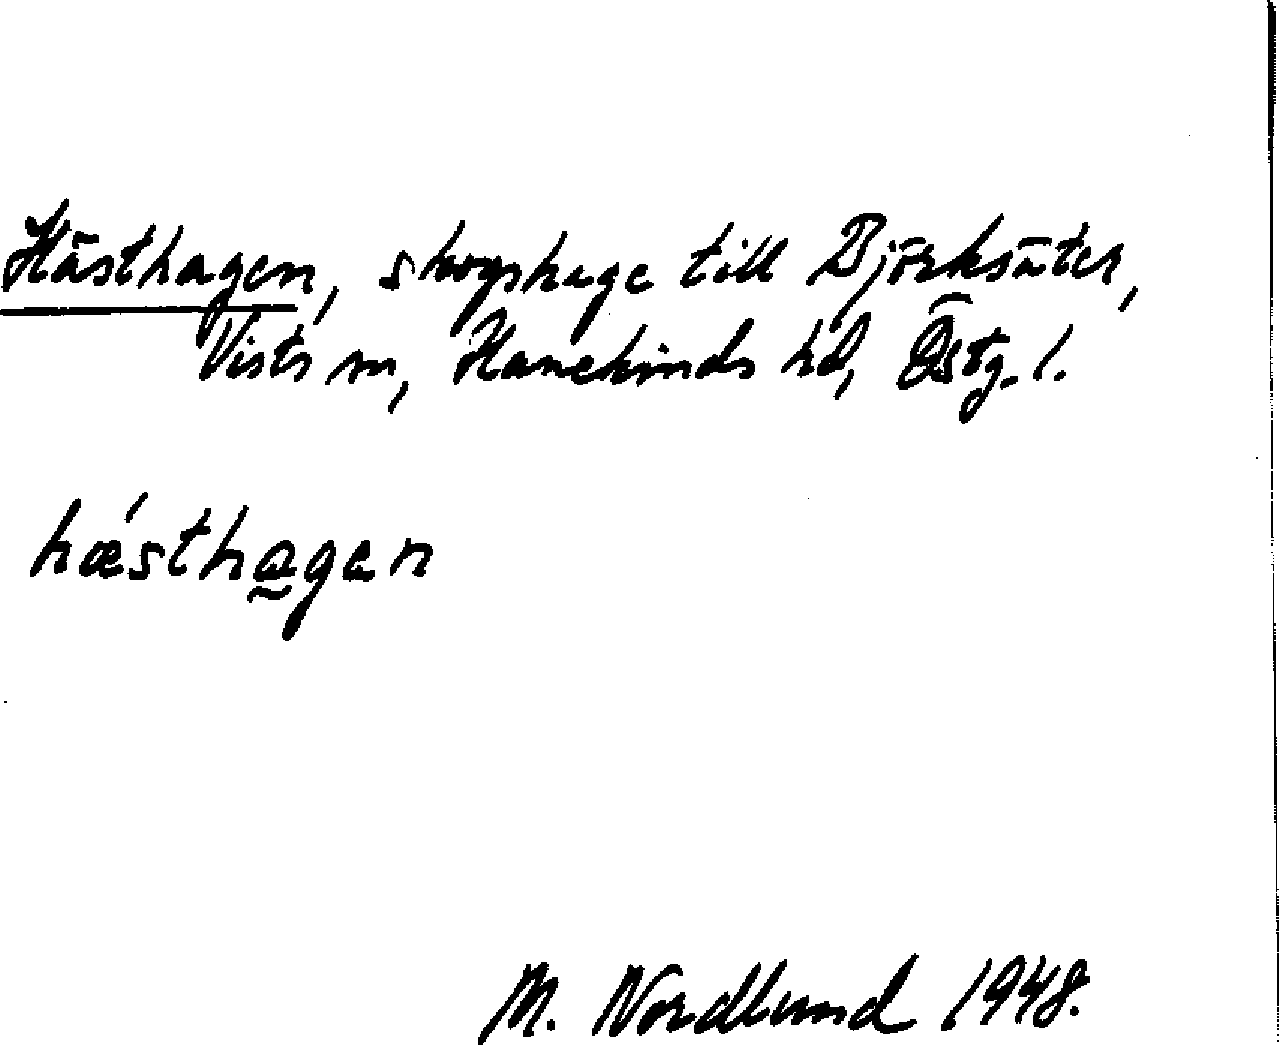 Hästhagen, skogshage till Björksäter,
Vists sn, Hanekinds hd, Östg. l.
hǽstha̰gen
M. Nordlund 1948.